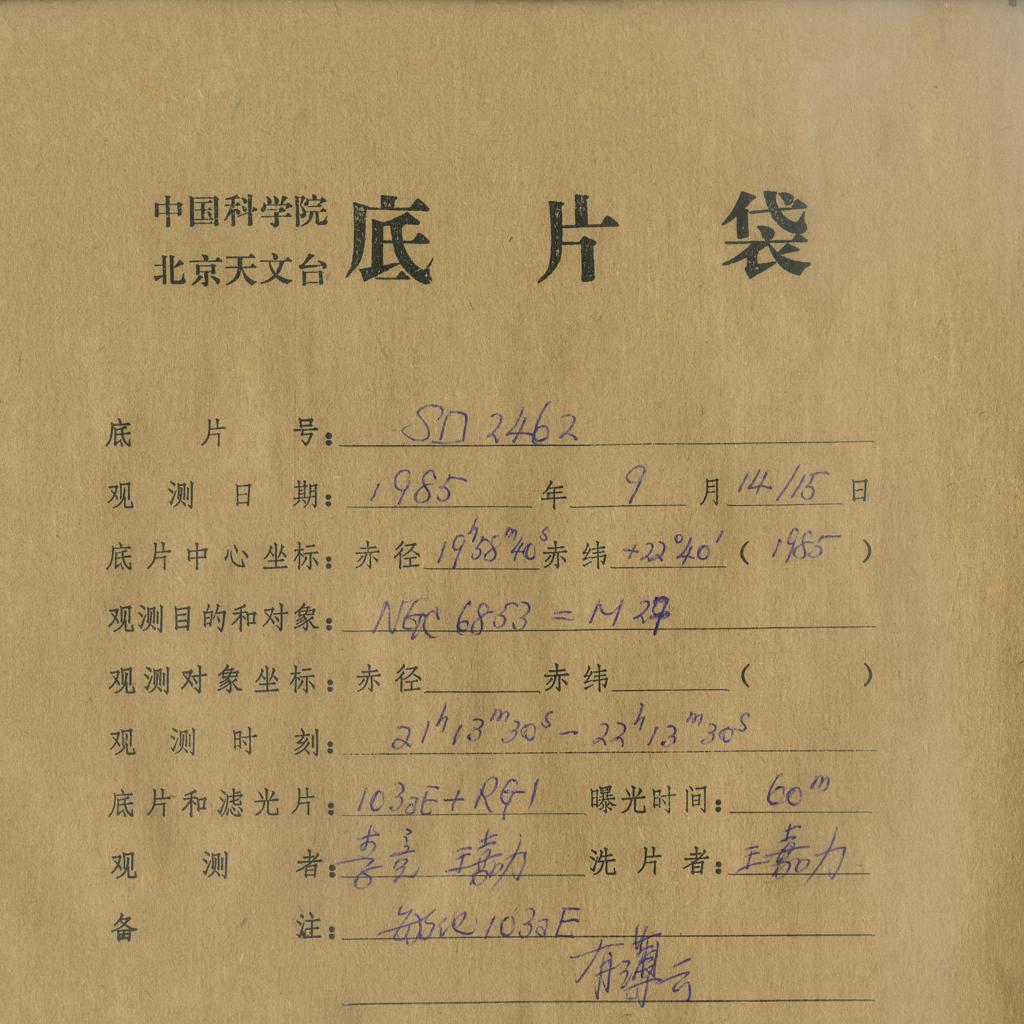 中国科学院
北京天文台
底片袋
底片号: SD 2462
观测日期: 1985 年 9 月 14/15 日
底片中心坐标: 赤径 19h58m40s 赤纬 +22°40′ ( 1985 )
观测目的和对象: NGC 6853 = M 27
观测对象坐标: 赤径 赤纬 ( )
观测时刻: 21h13m30s – 22h13m30s
底片和滤光片: 103aE + RG1 曝光时间: 60m
观测者: 李竞 王嘉力 洗片者: 王嘉力
备注: 敏化 103aE
有薄云